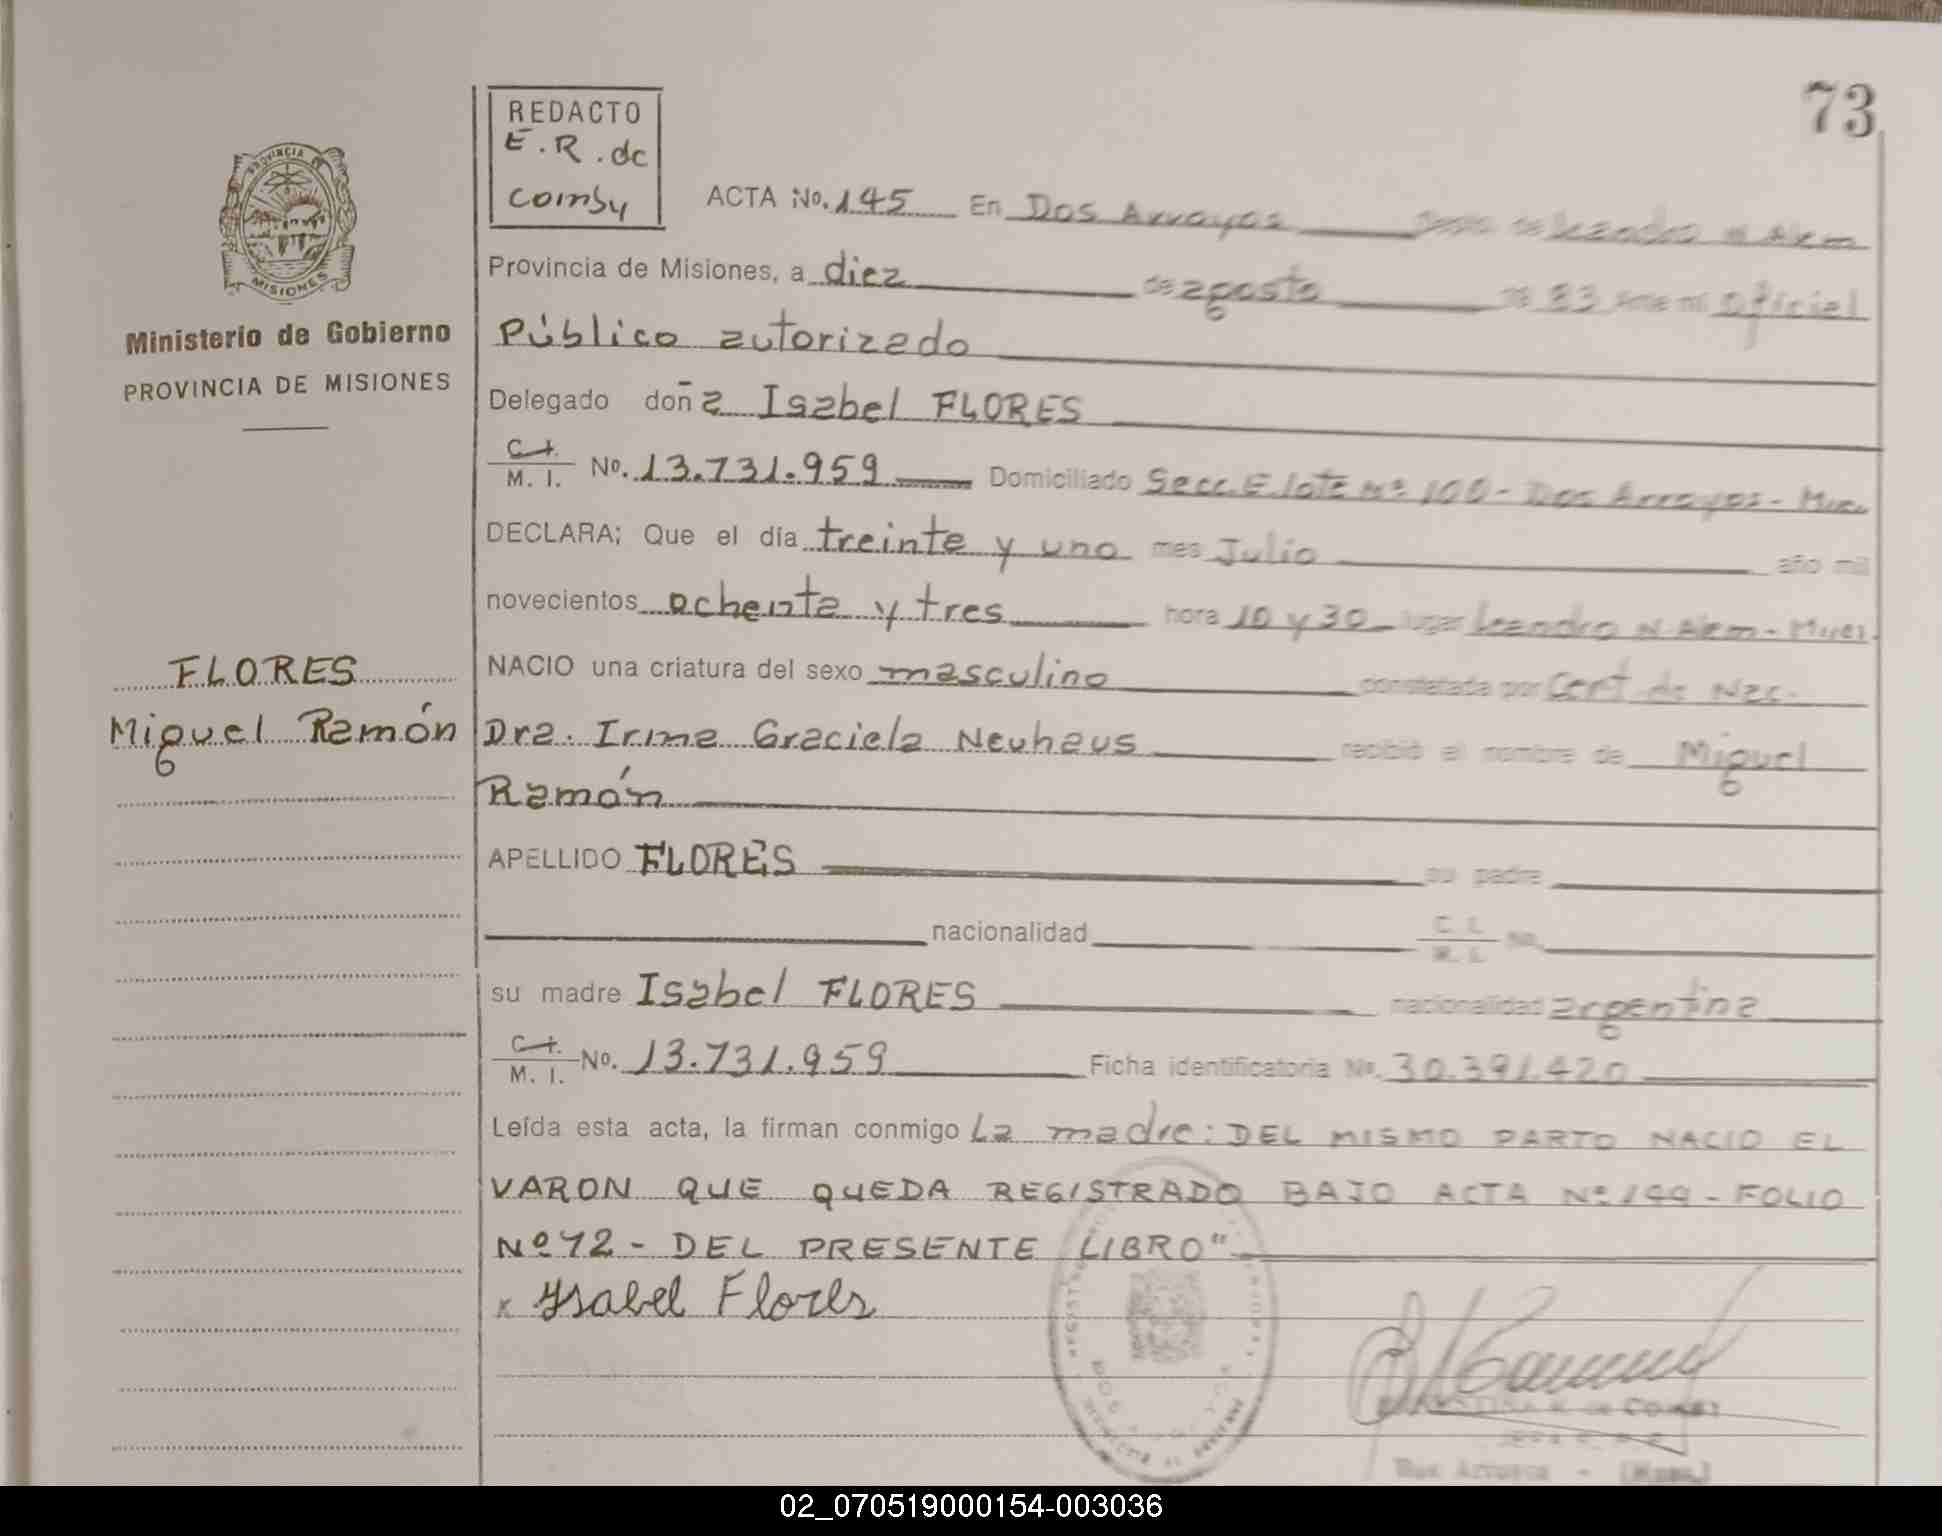 73
REDACTO
E.R. de
Comby
PROVINCIA DE
MISIONES
Ministerio de Gobierno
PROVINCIA DE MISIONES
ACTA No. 145 En Dos Arroyos Depto de Leandro N Alem
Provincia de Misiones, a diez de agosto 19 83 Ante mí Oficial
Público autorizado
Delegado doña Isabel FLORES
C.I. M. I. No. 13.731.959 Domiciliado Secc. E. lote Nº 100 - Dos Arroyos - Mnes
DECLARA; Que el día treinte y uno mes Julio año mil
novecientos ochenta y tres hora 10 y 30 lugar Leandro N Alem - Mnes.
FLORES
Miguel Ramón
NACIO una criatura del sexo masculino constatada por Cert de Nac.
Dra. Irma Graciela Neuhaus recibió el nombre de Miguel
Ramón
APELLIDO FLORES su padre
nacionalidad C. I. M. I. No.
su madre Isabel FLORES nacionalidad argentina
C.I. M. I. No. 13.731.959 Ficha identificatoria No. 30.391.420
Leída esta acta, la firman conmigo La madre: DEL MISMO PARTO NACIO EL
VARON QUE QUEDA REGISTRADO BAJO ACTA Nº 144 - FOLIO
Nº 72 - DEL PRESENTE LIBRO"
x Ysabel Flores
de COMBY
Dos Arroyos - (Mnes.)
02_070519000154-003036